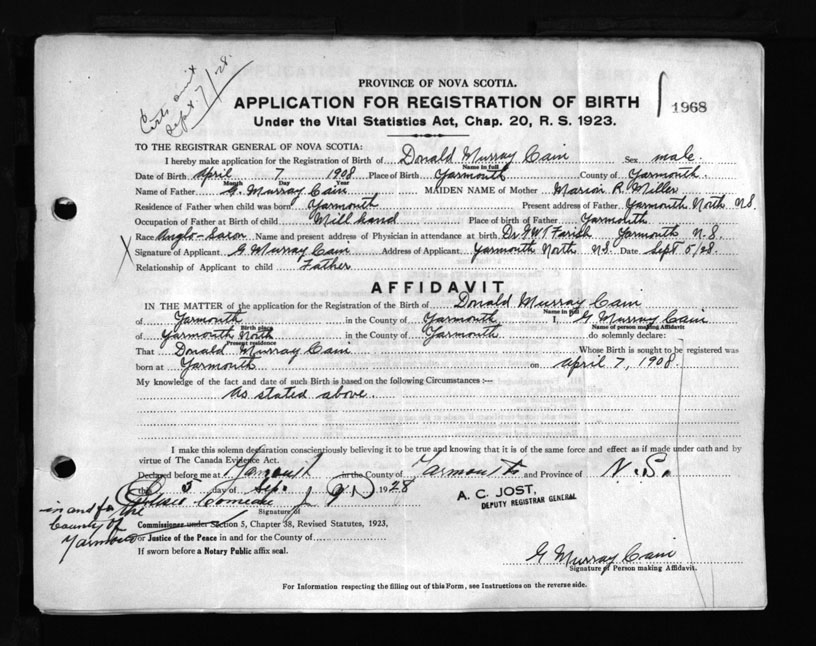 Certs sent
Sept. 7/28.
PROVINCE OF NOVA SCOTIA.
APPLICATION FOR REGISTRATION OF BIRTH
1968
Under the Vital Statistics Act, Chap. 20, R. S. 1923.
TO THE REGISTRAR GENERAL OF NOVA SCOTIA:
I hereby make application for the Registration of Birth of Donald Murray Cain Sex male.
Name in full
Date of Birth April 7 1908 Place of Birth Yarmouth County of Yarmouth.
Month Day Year
Name of Father G. Murray Cain MAIDEN NAME of Mother Marion R. Miller
Residence of Father when child was born Yarmouth Present address of Father Yarmouth North N.S.
Occupation of Father at Birth of child Mill hand Place of birth of Father Yarmouth
Race Anglo-Saxon Name and present address of Physician in attendance at birth Dr. G.W.T. Farish Yarmouth N.S.
X Signature of Applicant G Murray Cain Address of Applicant Yarmouth North N.S. Date Sept 5/28.
Relationship of Applicant to child Father
AFFIDAVIT
IN THE MATTER of the application for the Registration of the Birth of Donald Murray Cain
Name in full
of Yarmouth in the County of Yarmouth I, G Murray Cain
Birth place Name of person making Affidavit
of Yarmouth North in the County of Yarmouth do solemnly declare:
Present residence
That Donald Murray Cain Whose Birth is sought to be registered was
born at Yarmouth on April 7, 1908.
My knowledge of the fact and date of such Birth is based on the following Circumstances :—
As stated above.
I make this solemn declaration conscientiously believing it to be true and knowing that it is of the same force and effect as if made under oath and by
virtue of The Canada Evidence Act.
Declared before me at Yarmouth in the County of Yarmouth and Province of N.S.
this 5 day of Sep. 1928
A. C. JOST,
DEPUTY REGISTRAR GENERAL
Comeau J
Signature of
in and for the
County of
Yarmouth
Commissioner under Section 5, Chapter 38, Revised Statutes, 1923,
or Justice of the Peace in and for the County of
If sworn before a Notary Public affix seal.
G Murray Cain
Signature of Person making Affidavit.
For Information respecting the filling out of this Form, see Instructions on the reverse side.